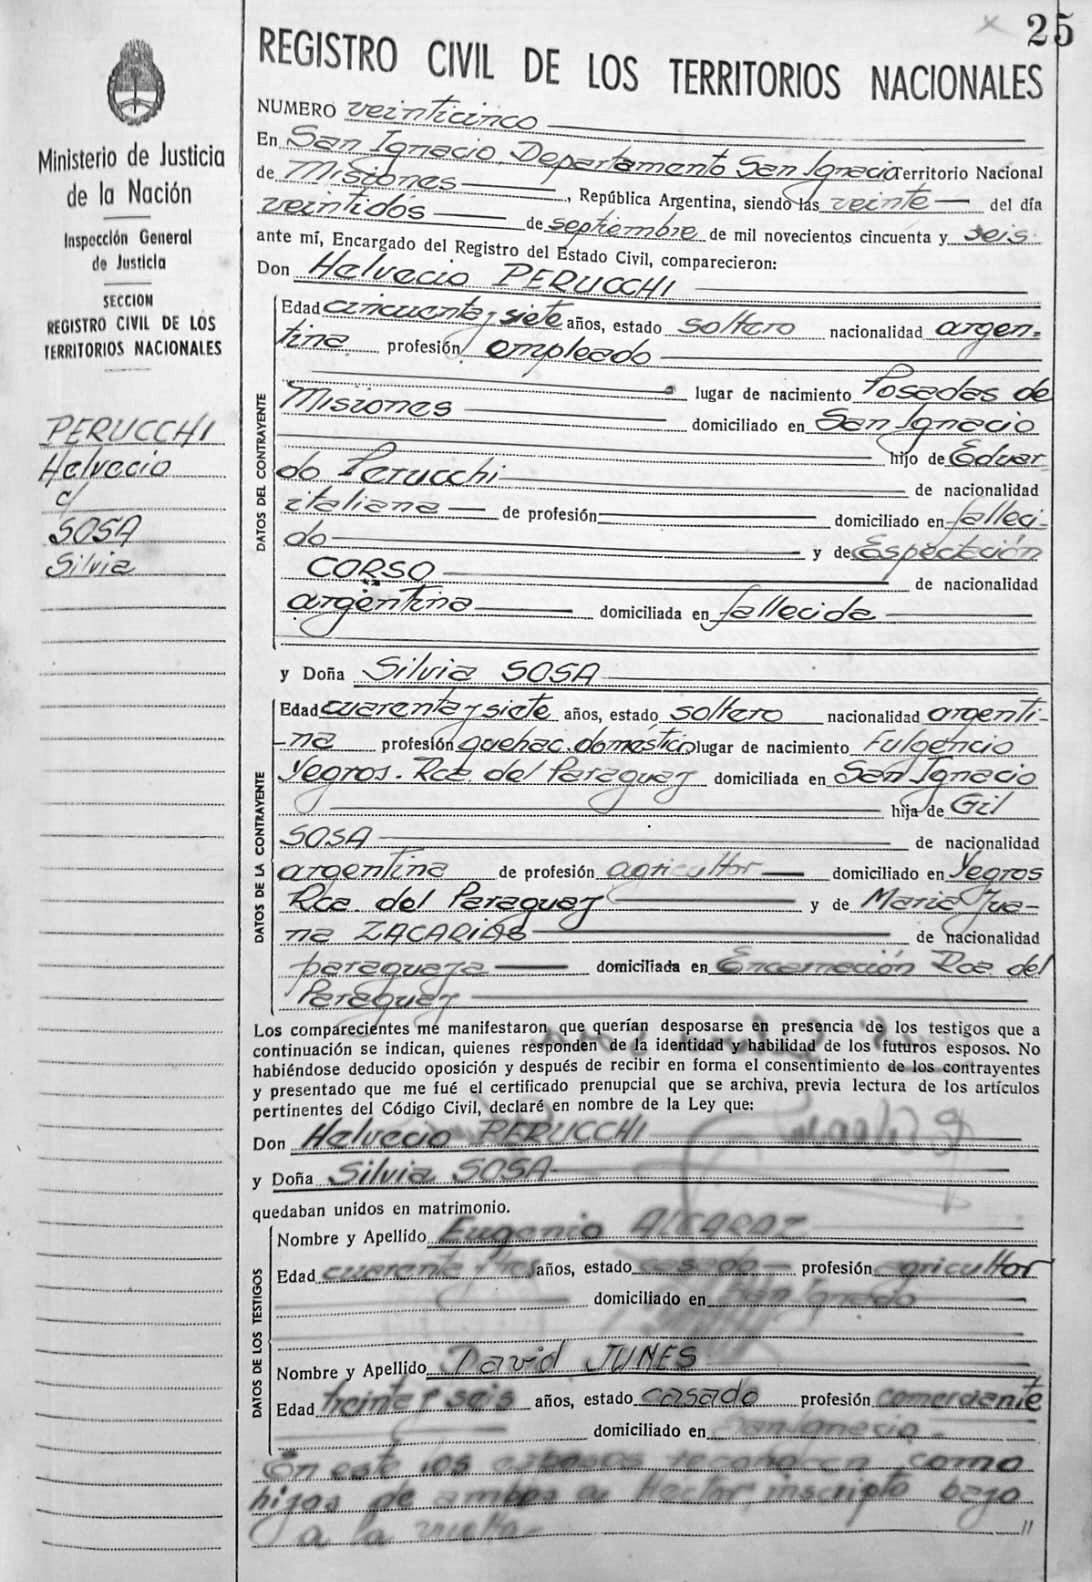 25
REGISTRO CIVIL DE LOS TERRITORIOS NACIONALES
Ministerio de Justicia
de la Nación
Inspección General
de Justicia
SECCION
REGISTRO CIVIL DE LOS
TERRITORIOS NACIONALES
PERUCCHI
Helvecio
c/
SOSA
Silvia
NUMERO veinticinco
En San Ignacio, Departamento San Ignacio Territorio Nacional
de Misiones, República Argentina, siendo las veinte del día
veintidós de septiembre de mil novecientos cincuenta y seis
ante mí, Encargado del Registro del Estado Civil, comparecieron:
Don Helvecio PERUCCHI
DATOS DEL CONTRAYENTE
Edad cincuenta y siete años, estado soltero nacionalidad argen-
tina profesión empleado
lugar de nacimiento Posadas de
Misiones domiciliado en San Ignacio
hijo de Eduar
do Perucchi de nacionalidad
italiana de profesión domiciliado en falleci-
do y de Espectación
CORSO de nacionalidad
argentina domiciliada en fallecida
y Doña Silvia SOSA
DATOS DE LA CONTRAYENTE
Edad cuarenta y siete años, estado soltero nacionalidad argenti-
-na profesión quehac. doméstico lugar de nacimiento Fulgencio
Yegros. Rca. del Paraguay domiciliada en San Ignacio
hija de Gil
SOSA de nacionalidad
argentina de profesión agricultor domiciliado en Yegros
Rca. del Paraguay y de Maria Jua-
na ZACARIAS de nacionalidad
paraguaya domiciliada en Encarnación Rca. del
Paraguay
Los comparecientes me manifestaron que querían desposarse en presencia de los testigos que a
continuación se indican, quienes responden de la identidad y habilidad de los futuros esposos. No
habiéndose deducido oposición y después de recibir en forma el consentimiento de los contrayentes
y presentado que me fué el certificado prenupcial que se archiva, previa lectura de los artículos
pertinentes del Código Civil, declaré en nombre de la Ley que:
Don Helvecio PERUCCHI
y Doña Silvia SOSA
quedaban unidos en matrimonio.
DATOS DE LOS TESTIGOS
Nombre y Apellido Eugenio ALCARAZ
Edad cuarenta y tres años, estado casado profesión agricultor
domiciliado en San Ignacio
Nombre y Apellido David JUNES
Edad treinta y seis años, estado casado profesión comerciante
domiciliado en San Ignacio.
En este los esposos como
hijos de ambos a Hector, inscripto bajo
a la vuelta- //